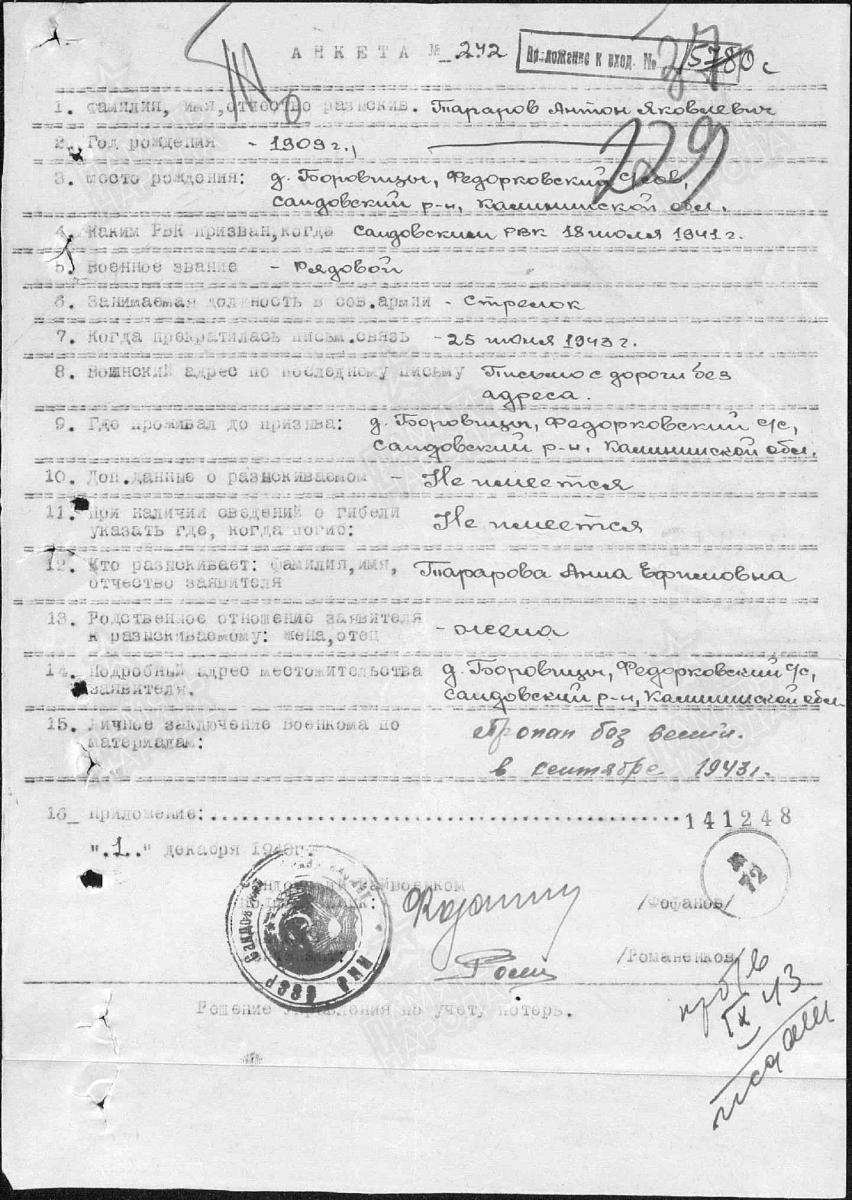 АНКЕТА № 242
Приложение к вход. № 5780с
229
1. Фамилия, имя, отчество разыскив. Тараров Антон Яковлевич
2. Год рождения - 1909 г.,
3. Место рождения: д. Боровицы, Федорковский с/сов,
Сандовский р-н, Калининской обл.
4. Каким РВК призван, когда Сандовским РВК 18 июля 1941 г.
5. Военное звание - Рядовой
6. Занимаемая должность в сов.армии - Стрелок
7. Когда прекратилась письм.связь - 25 июня 1943 г.
8. Воинский адрес по последнему письму Письмо с дороги без
адреса.
9. Где проживал до призыва: д. Боровицы, Федорковский с/с,
Сандовский р-н, Калининской обл.
10. Доп.данные о разыскиваемом - Не имеется
11. При наличии сведений о гибели
указать где, когда погиб: Не имеется
12. Кто разыскивает: фамилия, имя,
отчество заявителя Тарарова Анна Ефимовна
13. Родственное отношение заявителя
к разыскиваемому: жена, отец - жена
14. Подробный адрес местожительства д. Боровицы, Федорковский с/с,
заявителя. Сандовский р-н, Калининской обл.
15. Личное заключение военкома по Пропал без вести
материалам: в сентябре 1943 г.
16_ Приложение:
141248
"1." декабря 194 г.
Сандовский райвоенком
/Фофанов/
72
/Романенков
СССР
Решение Управления по учету потерь.
пр б/в
IX 43